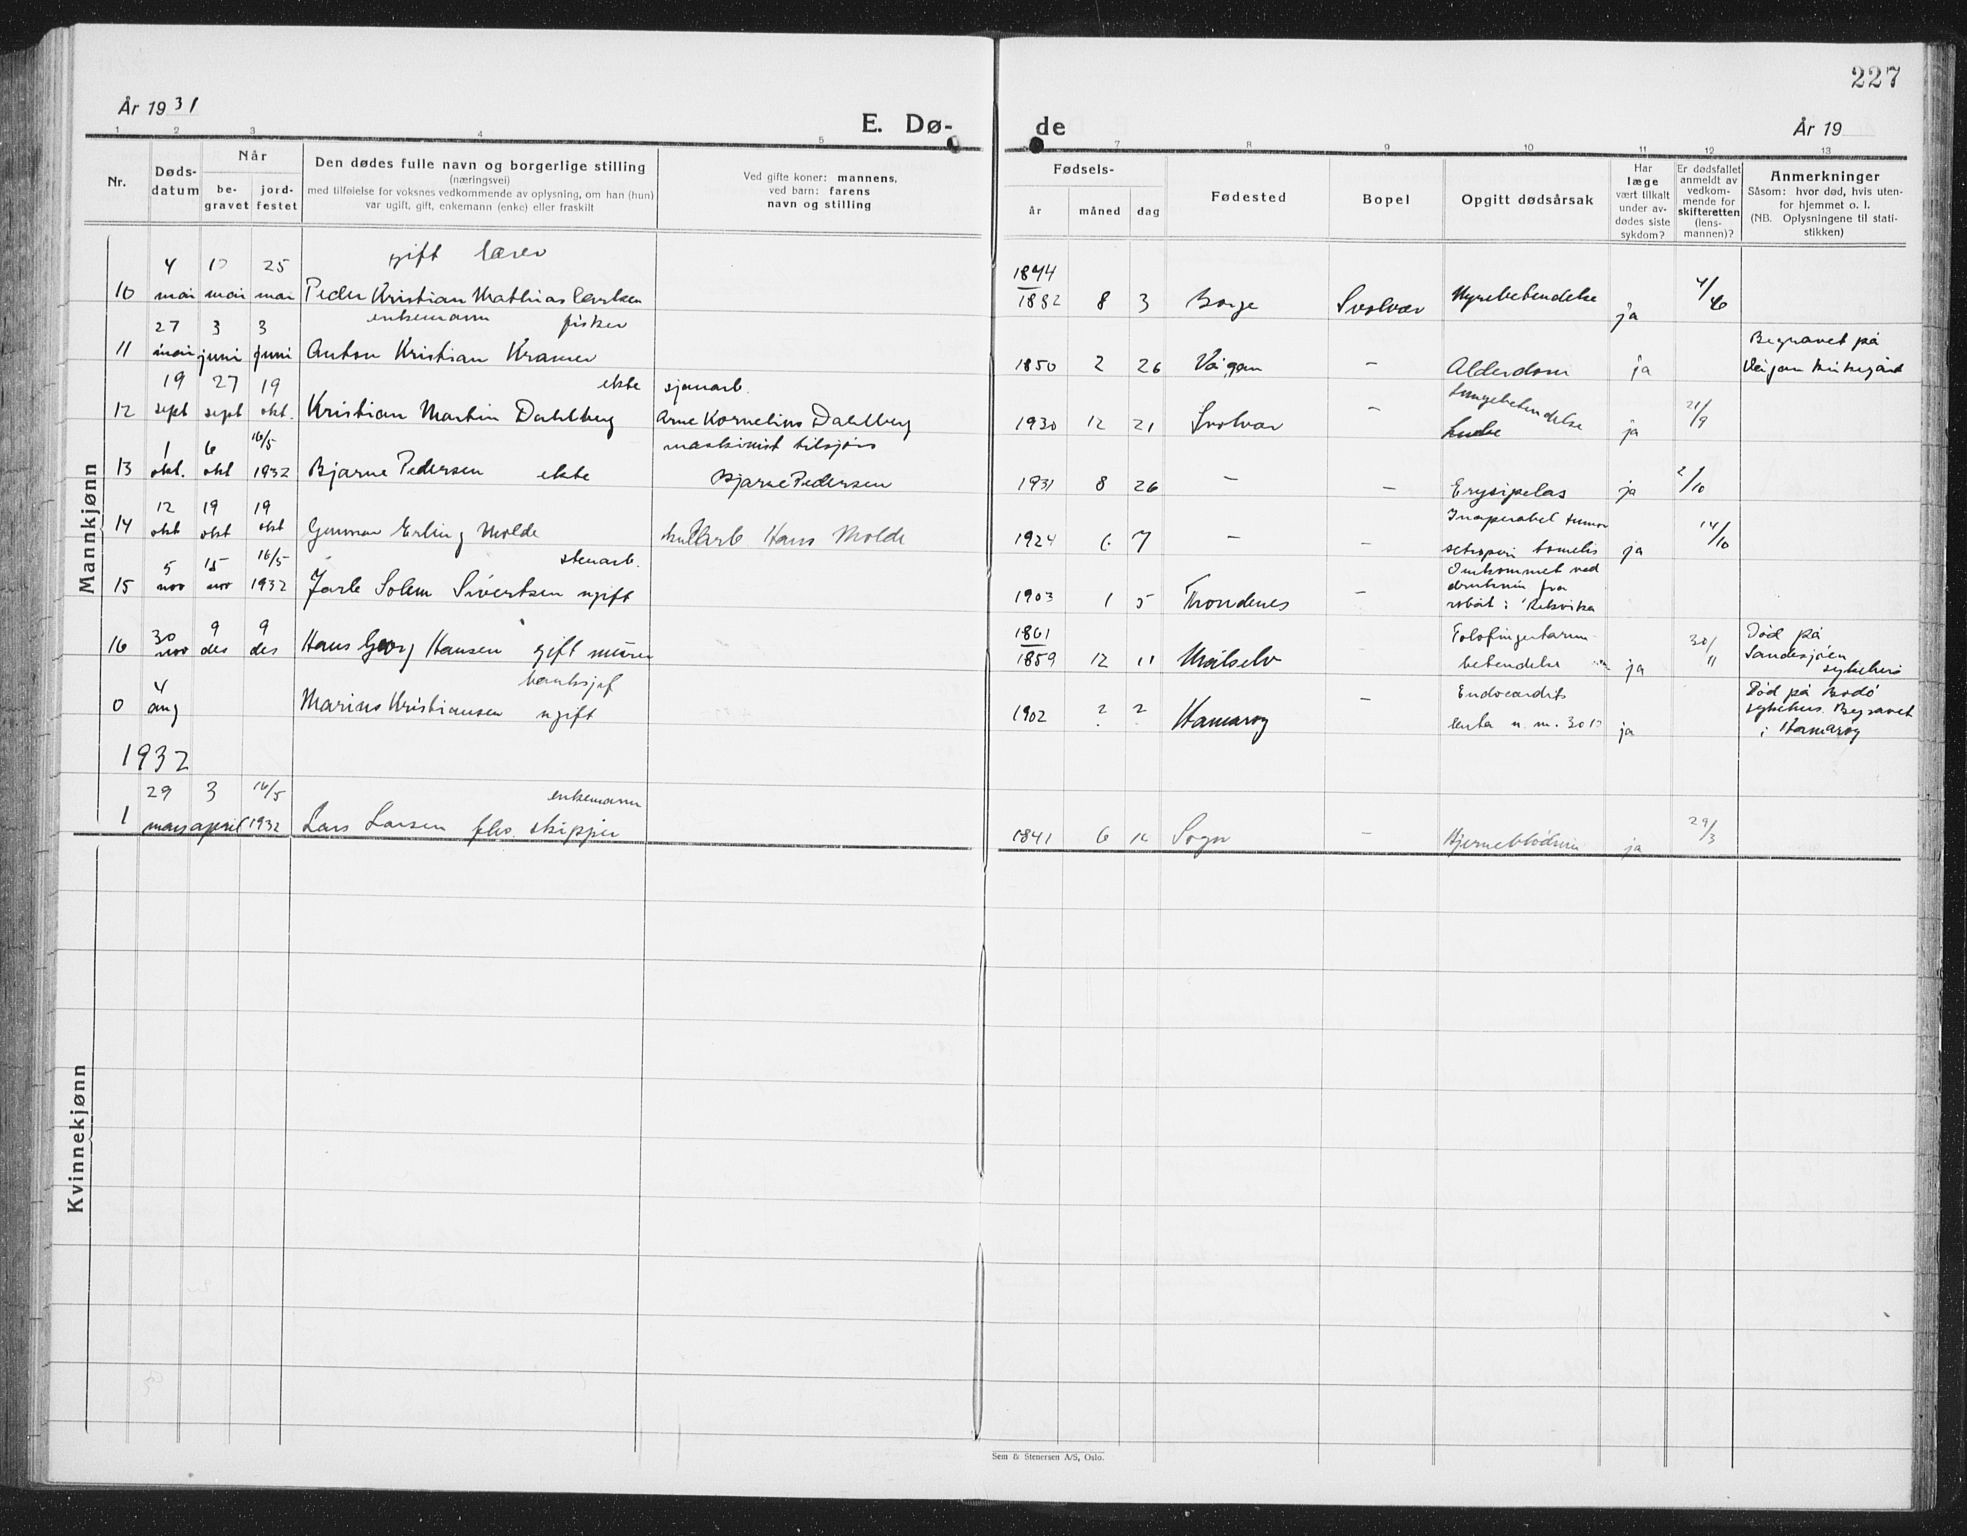 227
År 1931
E. Dø-
de
År 19
1 2 3 4 5
7 8 9 10 11 12 13
Nr.
Døds-
datum
Når
be-
gravet
jord-
festet
Den dødes fulle navn og borgerlige stilling
(næringsvei)
med tilføielse for voksnes vedkommende av oplysning, om han (hun)
var ugift, gift, enkemann (enke) eller fraskilt
Ved gifte koner: mannens,
ved barn: farens
navn og stilling
Fødsels-
år
måned
dag
Fødested
Bopel
Opgitt dødsårsak
Har
læge
vært tilkalt
under av-
dødes siste
sykdom?
Er dødsfallet
anmeldt av
vedkom-
mende for
skifteretten
(lens-
mannen)?
Anmerkninger
Såsom: hvor død, hvis uten-
for hjemmet o. l.
(NB. Oplysningene til stati-
stikken)
Mannkjønn
4 25 gift lærer 1844
10 mai mai mai Peder Kristian Mathias 1882 8 3 Borge Svolvær Nyrebetendelse ja 4/6
27 3 3 enkemann fisker Begravet på
11 mai juni juni Anton Kristian Kramer 1850 2 26 Vågan – Alderdom ja Vågan kirkegård
19 27 19 ekte sjauarb. Lungebetendelse
12 sept sept okt. Kristian Martin Dahlberg Arne Kornelius Dahlberg 1930 12 21 Svolvær – ja 21/9
1 6 16/5 maskinist tilsjøs
13 okt. okt 1932 Bjarne Pedersen ekte Bjarne Pedersen 1931 8 26 – – Erysipelas ja 2/10
12 19 19 Inoperabel tumor
14 okt okt okt Gunnar Erling Molde Hans Molde 1924 6 7 – – ja 14/10
5 15 16/5 stenarb. Omkommet ved
15 nov nov 1932 Jarle Solem Sivertsen ugift 1903 1 5 Trondenes – drukning fra
robåt i
30 9 9 1861 Død på
16 nov des des Hans Georg Hansen gift murer 1859 12 11 Målselv betendelse ja 30/11 Sandesjøen
sykehus
4 banksjef Endocardit Død på Bodö
0 aug Marius Kristiansen ugift 1902 ? ? Hamarøy – lenta ja sykehus. Begravet
i Hamarøy
1932
29 3 16/5 enkemann
1 mars april 1932 Lars Larsen fhv. skipper 1841 6 Sogn – Hjerneblødning ja 29/3
Kvinnekjønn
Sem & Stenersen A/S, Oslo.